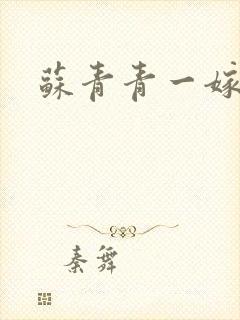 蘇青青一嫁
秦舞